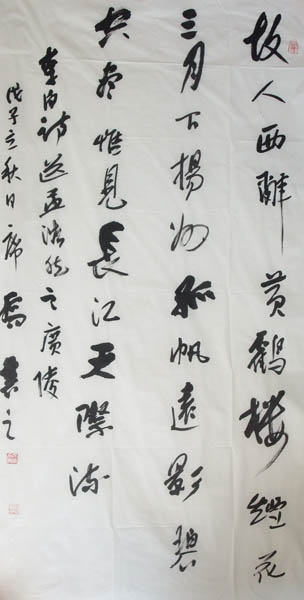 故人西辭黄鶴樓煙花
三月下揚州孤帆遠影碧
空尽惟見長江天際流
李白詩送孟浩然之廣陵
戊子立秋日席書之